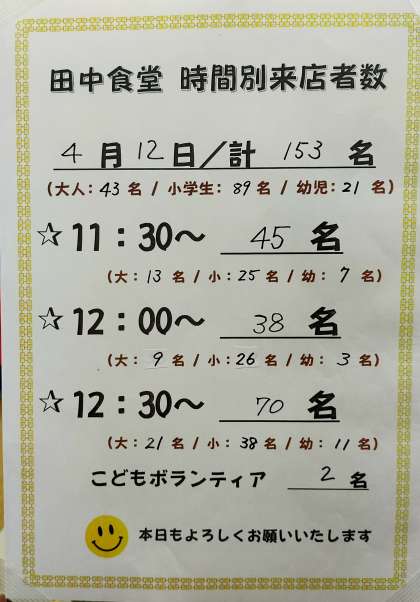 田中食堂 時間別来店者数
4月12日／計 153名
(大人：43名 / 小学生：89名 / 幼児：21名)
☆11：30～ 45名
(大：13名 / 小：25名 / 幼：7名)
☆12：00～ 38名
(大：9名 / 小：26名 / 幼：3名)
☆12：30～ 70名
(大：21名 / 小：38名 / 幼：11名)
こどもボランティア 2名
本日もよろしくお願いいたします